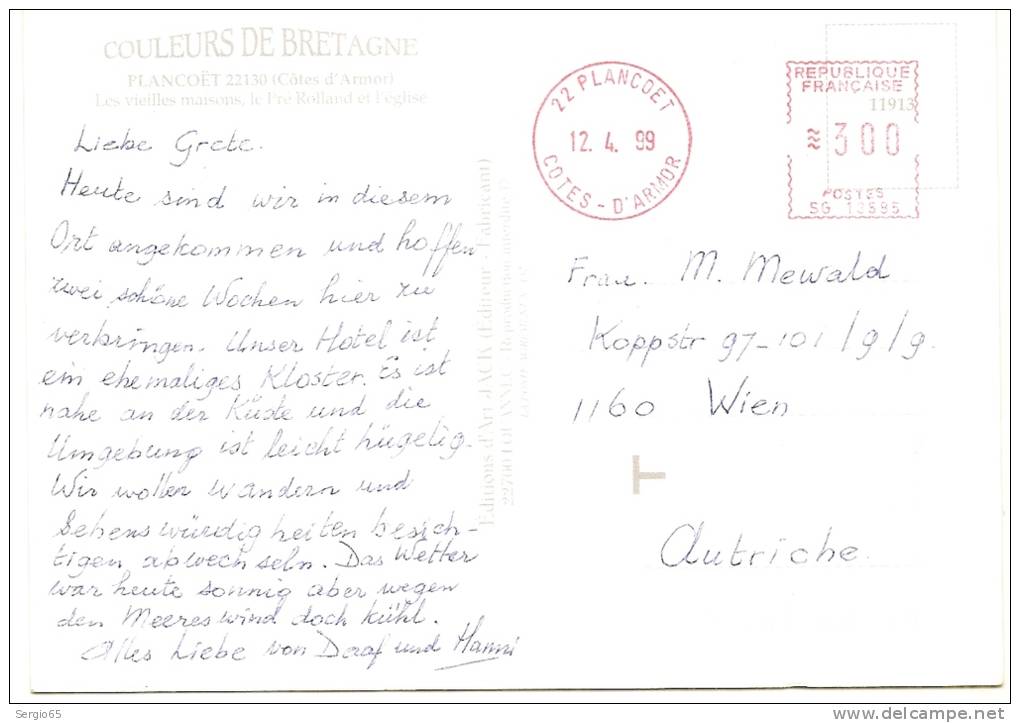 COULEURS DE BRETAGNE
PLANCOËT 22130 (Côtes d'Armor)
Les vieilles maisons, le Pré Rolland et l'église
Liebe Grete.
Heute sind wir in diesem
Ort angekommen und hoffen
zwei schöne Wochen hier zu
verbringen. Unser Hotel ist
ein ehemaliges Kloster. Es ist
nahe an der Küste und die
Umgebung ist leicht hügelig.
Wir wollen wandern und
Sehenswürdigkeiten besich-
tigen abwechseln. Das Wetter
war heute sonnig aber wegen
den Meereswind doch kühl.
Alles Liebe von und Hanni
Editions d'Art JACK (Editeur - Fabricant)
22700 LOUANNEC - Reproduction interdite
22 PLANCOET
12. 4. 99
COTES - D'ARMOR
REPUBLIQUE
FRANÇAISE
11913
≈ 300
POSTES
SG 13595
Frau. M. Mewald
Koppstr 97-101/9/9.
1160 Wien
T
Autriche
Sergio65
http://www.delcampe.net